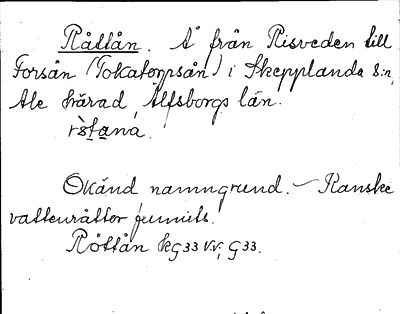 Råttån. Å från Risveden till
Forsån (Tokatorpsån) i Skepplanda s:n,
Ale härad, Älfsborgs län.
Okänd namngrund. – Kanske
vattenråttor funnits.
Röttån kG33 v.v; G33.